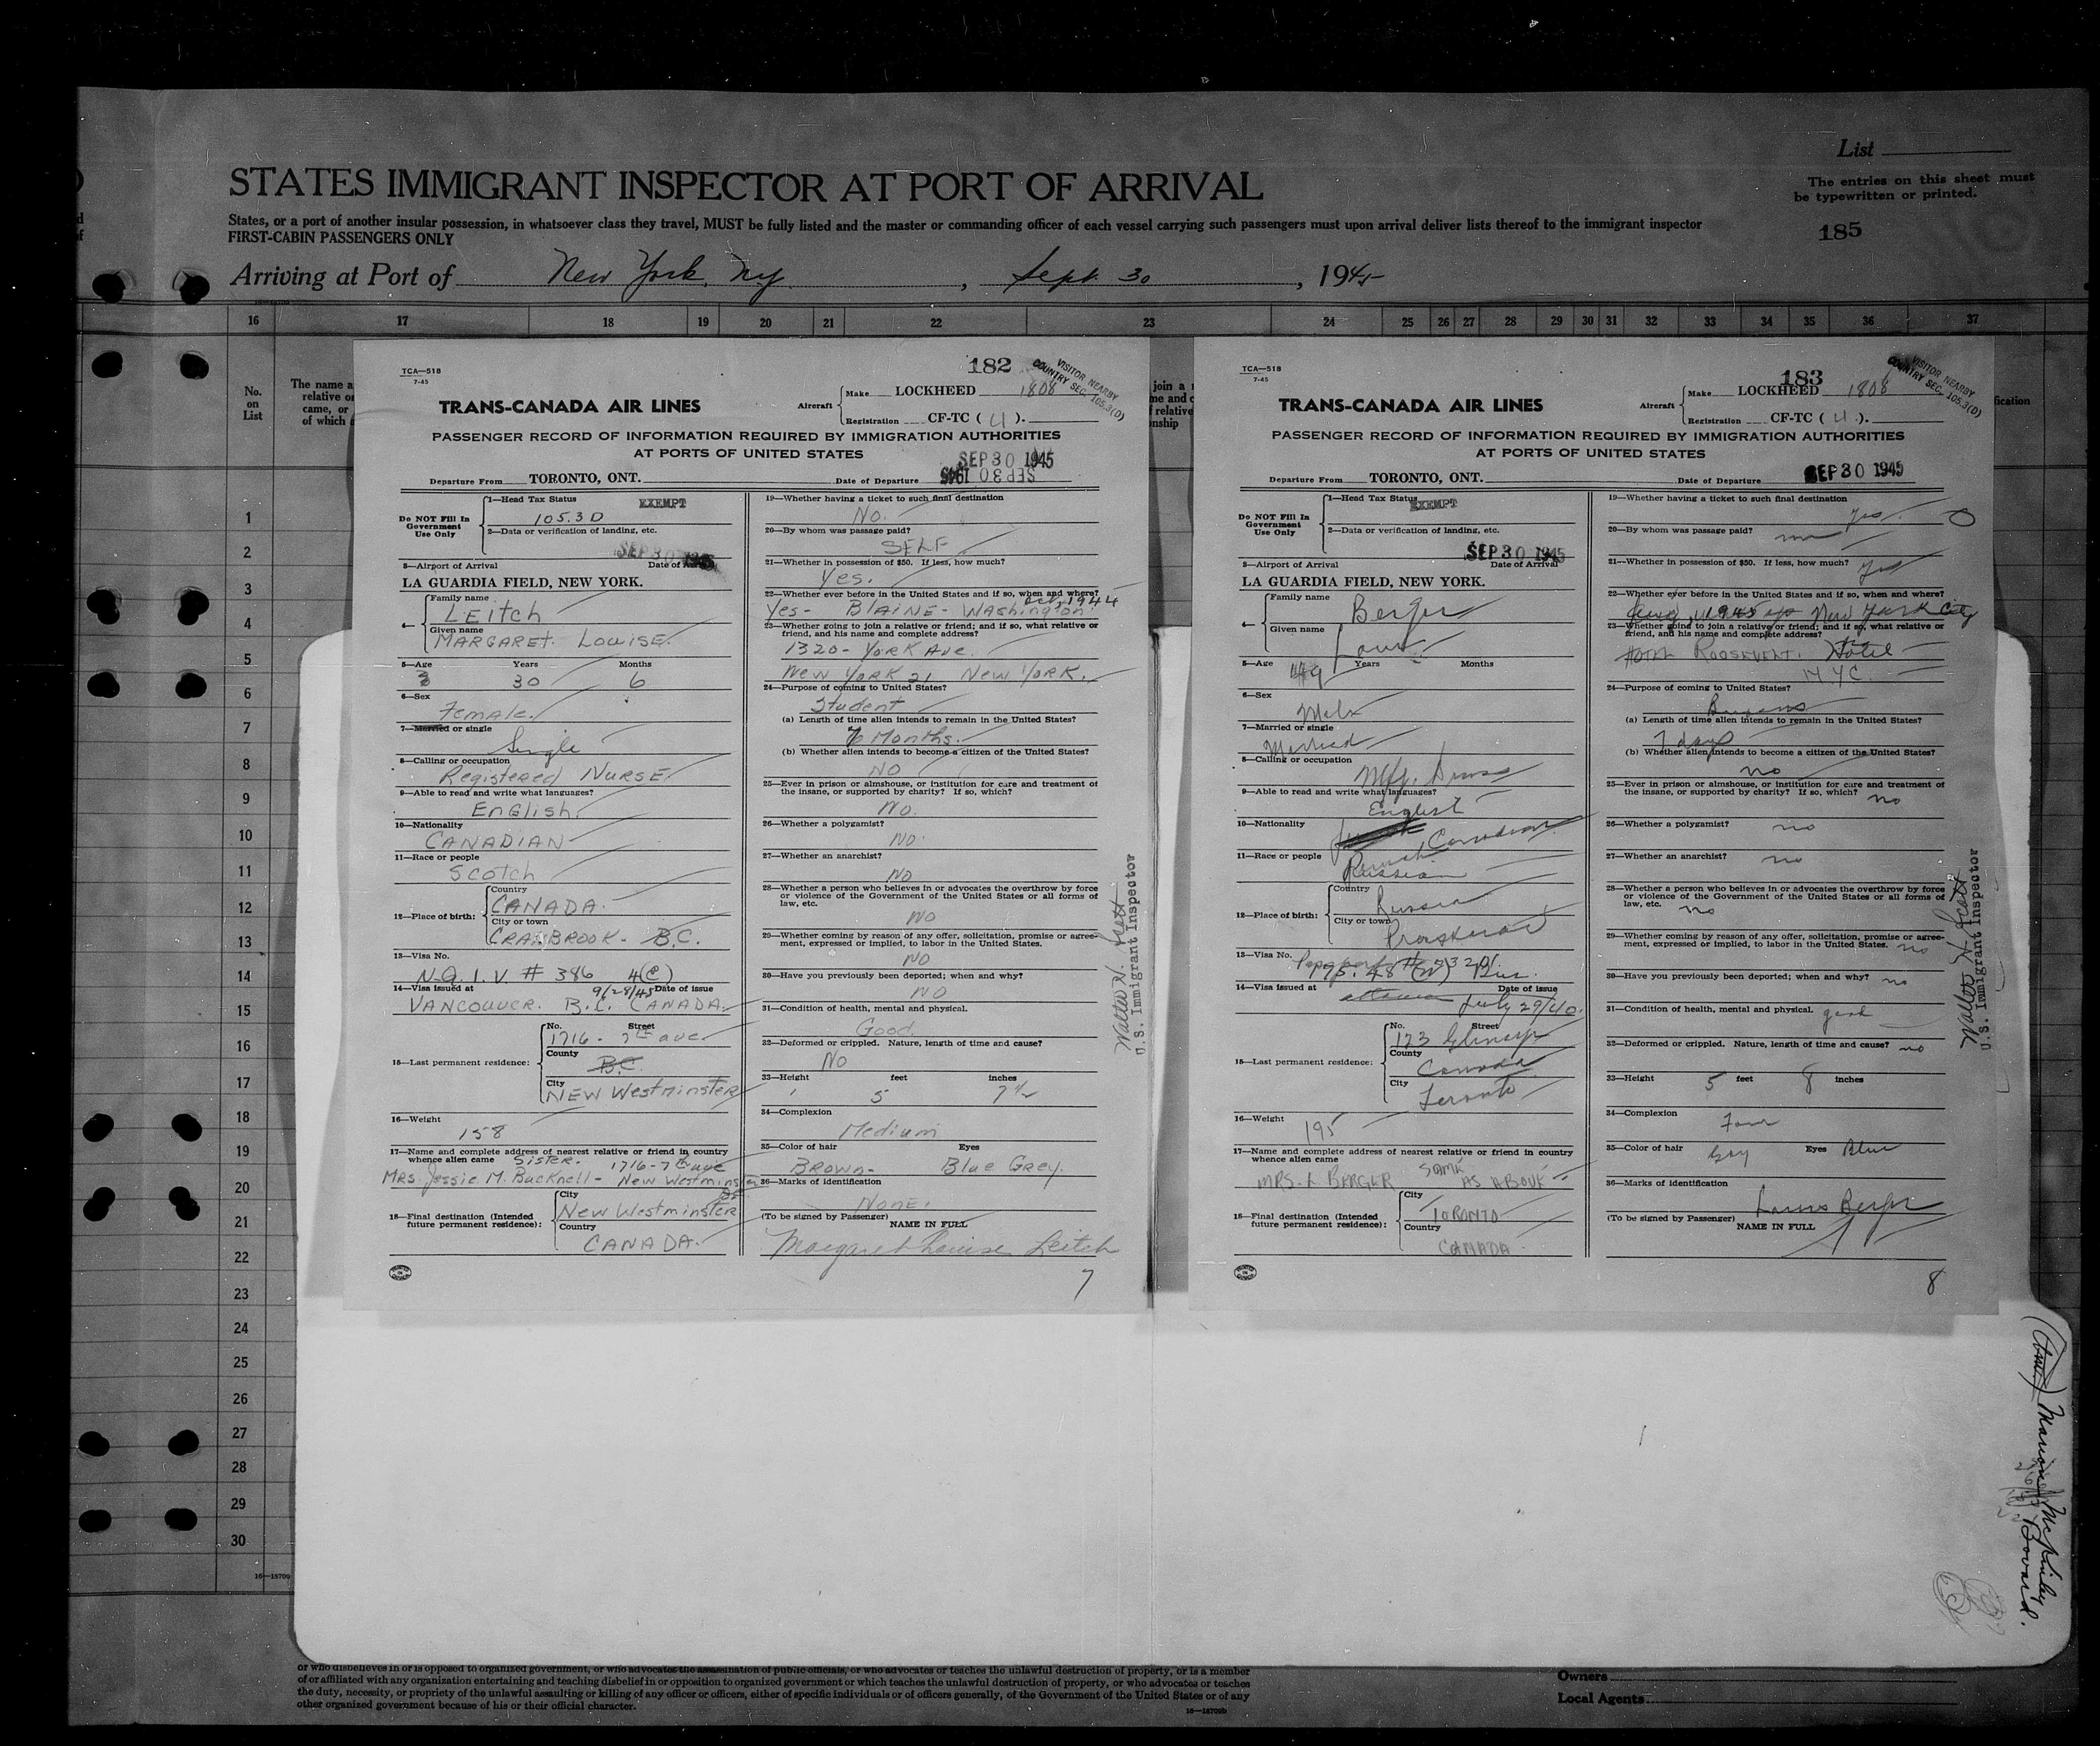 List
STATES IMMIGRANT INSPECTOR AT PORT OF ARRIVAL
The entries on this sheet must
be typewritten or printed.
States, or a port of another insular possession, in whatsoever class they travel, MUST be fully listed and the master or commanding officer of each vessel carrying such passengers must upon arrival deliver lists thereof to the immigrant inspector
FIRST-CABIN PASSENGERS ONLY
185
Arriving at Port of New York, N.Y. , Sept. 30 , 1945
16 17 18 19 20 21 22 23 24 25 26 27 28 29 30 31 32 33 34 35 36 37
No.
on
List
The name a
relative o
came, or
of which
1
2
3
4
5
6
7
8
9
10
11
12
13
14
15
16
17
18
19
20
21
22
23
24
25
26
27
28
29
30
TCA—518
7-45
182
VISITOR NEARBY
COUNTRY SEC. 105.3(D)
TRANS-CANADA AIR LINES
Aircraft
Make LOCKHEED 1808
Registration CF-TC ( U ).
PASSENGER RECORD OF INFORMATION REQUIRED BY IMMIGRATION AUTHORITIES
AT PORTS OF UNITED STATES
SEP 30 1945
SEP 30 1945
Departure From TORONTO, ONT. Date of Departure
Do NOT Fill In
Government
Use Only
1—Head Tax Status EXEMPT
105.3 D
2—Data or verification of landing, etc.
SEP 30 1945
3—Airport of Arrival Date of Arrival
LA GUARDIA FIELD, NEW YORK.
4—
Family name
LEITCH
Given name
MARGARET. LOUISE.
5—Age Years Months
30 6
6—Sex
Female.
7—Married or single
Single
8—Calling or occupation
Registered NURSE.
9—Able to read and write what languages?
ENGLISH.
10—Nationality
CANADIAN
11—Race or people
SCOTCH
12—Place of birth:
Country
CANADA.
City or town
CRANBROOK - B.C.
13—Visa No.
N.Q.I.V. # 386 4(e)
14—Visa issued at 9/28/45 Date of issue
VANCOUVER. B.C. CANADA.
15—Last permanent residence:
No. Street
1716 - 7th ave
County
B.C.
City
NEW Westminster
16—Weight
158
17—Name and complete address of nearest relative or friend in country
whence alien came SISTER. 1716-7th ave
MRS. Jessie M. Bucknell - New Westminster
BC
18—Final destination (Intended
future permanent residence):
City
New Westminster
Country
CANADA.
19—Whether having a ticket to such final destination
No.
20—By whom was passage paid?
SELF
21—Whether in possession of $50. If less, how much?
Yes.
22—Whether ever before in the United States and if so, when and where?
Yes - BLAINE - Washington. Oct. 1944
23—Whether going to join a relative or friend; and if so, what relative or
friend, and his name and complete address?
1320 - YORK Ave.
New YORK 21 New YORK.
24—Purpose of coming to United States?
Student
(a) Length of time alien intends to remain in the United States?
Months.
(b) Whether alien intends to become a citizen of the United States?
NO
25—Ever in prison or almshouse, or institution for care and treatment of
the insane, or supported by charity? If so, which?
No.
26—Whether a polygamist?
NO.
27—Whether an anarchist?
NO
28—Whether a person who believes in or advocates the overthrow by force
or violence of the Government of the United States or all forms of
law, etc.
NO
29—Whether coming by reason of any offer, solicitation, promise or agree-
ment, expressed or implied, to labor in the United States.
NO
30—Have you previously been deported; when and why?
NO
31—Condition of health, mental and physical.
Good.
32—Deformed or crippled. Nature, length of time and cause?
NO
33—Height feet inches
5 7½
34—Complexion
Medium
35—Color of hair Eyes
BROWN - Blue Grey.
36—Marks of identification
NONE.
(To be signed by Passenger) NAME IN FULL
Margaret Louise Leitch
Walter H. Scott
U.S. Immigrant Inspector
7
TCA—518
7-45
183
VISITOR NEARBY
COUNTRY SEC. 105.3(D)
TRANS-CANADA AIR LINES
Aircraft
Make LOCKHEED 1808
Registration CF-TC ( U ).
PASSENGER RECORD OF INFORMATION REQUIRED BY IMMIGRATION AUTHORITIES
AT PORTS OF UNITED STATES
SEP 30 1945
Departure From TORONTO, ONT. Date of Departure
Do NOT Fill In
Government
Use Only
1—Head Tax Status
EXEMPT
2—Data or verification of landing, etc.
SEP 30 1945
3—Airport of Arrival Date of Arrival
LA GUARDIA FIELD, NEW YORK.
4—
Family name
Berger
Given name
Louis
5—Age Years Months
49
6—Sex
Male
7—Married or single
Married
8—Calling or occupation
Mfg.
9—Able to read and write what languages?
English
10—Nationality
Canadian
11—Race or people
Russian
12—Place of birth:
Country
Russia
City or town
Proskurov
13—Visa No.
Passport
14—Visa issued at Date of issue
Ottawa July 29/40.
15—Last permanent residence:
No. Street
123
County
Canada
City
Toronto
16—Weight
195
17—Name and complete address of nearest relative or friend in country
whence alien came
MRS. L BERGER SAME AS ABOVE
18—Final destination (Intended
future permanent residence):
City
TORONTO
Country
CANADA
19—Whether having a ticket to such final destination
yes
20—By whom was passage paid?
21—Whether in possession of $50. If less, how much? Yes
22—Whether ever before in the United States and if so, when and where?
1945 New York City
23—Whether going to join a relative or friend; and if so, what relative or
friend, and his name and complete address?
ROOSEVELT. Hotel
N.Y.C.
24—Purpose of coming to United States?
Business
(a) Length of time alien intends to remain in the United States?
7 days
(b) Whether alien intends to become a citizen of the United States?
no
25—Ever in prison or almshouse, or institution for care and treatment of
the insane, or supported by charity? If so, which? no
26—Whether a polygamist? no
27—Whether an anarchist? no
28—Whether a person who believes in or advocates the overthrow by force
or violence of the Government of the United States or all forms of
law, etc. no
29—Whether coming by reason of any offer, solicitation, promise or agree-
ment, expressed or implied, to labor in the United States. no
30—Have you previously been deported; when and why? no
31—Condition of health, mental and physical. good
32—Deformed or crippled. Nature, length of time and cause? no
33—Height 5 feet 8 inches
34—Complexion
35—Color of hair Gray Eyes Blue
36—Marks of identification
Louis Berger
(To be signed by Passenger) NAME IN FULL
Walter H. Scott
U.S. Immigrant Inspector
8
16—18709
or who disbelieves in or is opposed to organized government, or who advocates the assassination of public officials, or who advocates or teaches the unlawful destruction of property, or is a member
of or affiliated with any organization entertaining and teaching disbelief in or opposition to organized government or which teaches the unlawful destruction of property, or who advocates or teaches
the duty, necessity, or propriety of the unlawful assaulting or killing of any officer or officers, either of specific individuals or of officers generally, of the Government of the United States or of any
other organized government because of his or their official character.
16—18709b
Owners
Local Agents